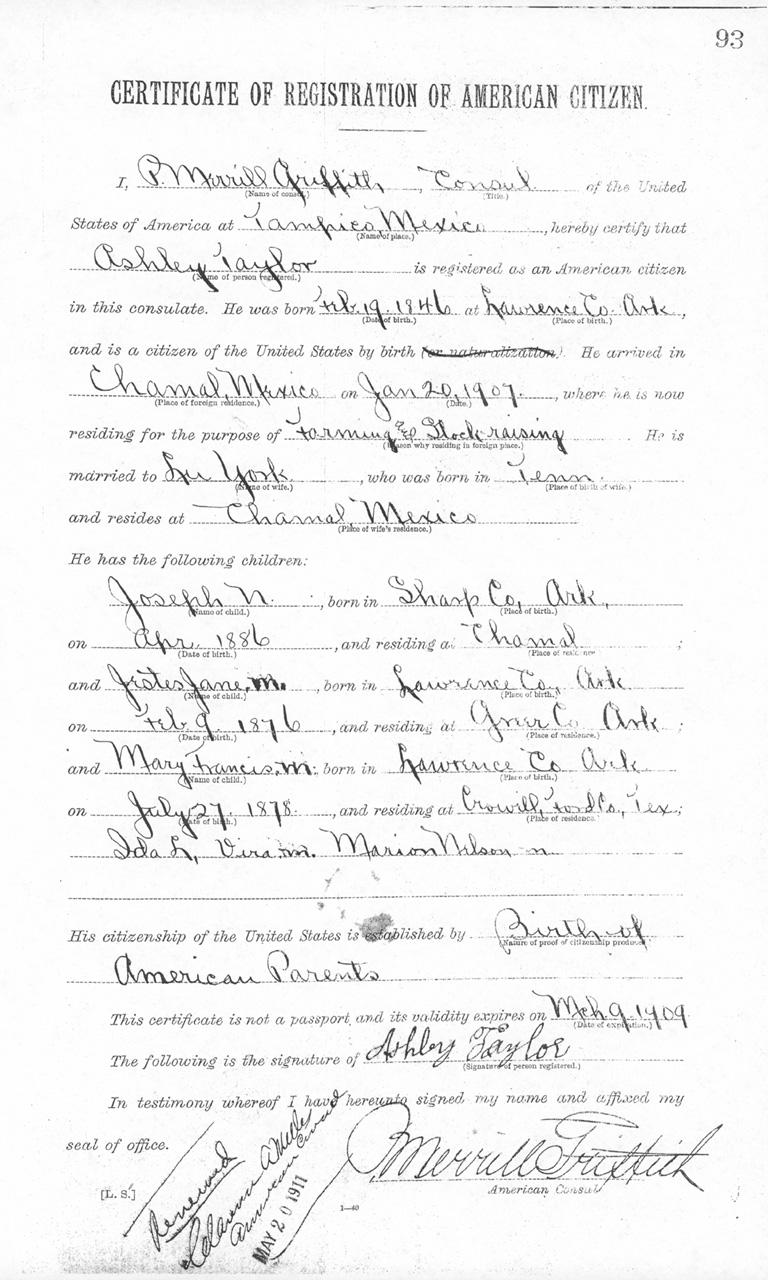 93
CERTIFICATE OF REGISTRATION OF AMERICAN CITIZEN.
I, P. Merrill Griffith, Consul of the United
(Name of consul.) (Title.)
States of America at Tampico, Mexico, hereby certify that
(Name of place.)
Ashley Taylor is registered as an American citizen
(Name of person registered.)
in this consulate. He was born Feb. 19. 1846 at Lawrence Co. Ark.,
(Date of birth.) (Place of birth.)
and is a citizen of the United States by birth (or naturalization). He arrived in
Chamal, Mexico on Jan 20, 1907., where he is now
(Place of foreign residence.) (Date.)
residing for the purpose of Farming & Stock-raising He is
(Reason why residing in foreign place.)
married to Lu York, who was born in Tenn.
(Name of wife.) (Place of birth of wife.)
and resides at Chamal, Mexico
(Place of wife's residence.)
He has the following children:
Joseph N., born in Sharp Co, Ark,
(Name of child.) (Place of birth.)
on Apr. 1886, and residing at Chamal;
(Date of birth.) (Place of residence
and Jane, m., born in Lawrence Co., Ark
(Name of child.) (Place of birth.)
on Feb 9. 1876, and residing at Greer Co Ark;
(Date of birth.) (Place of residence.)
and Mary Francis, m; born in Lawrence Co Ark
(Name of child.) (Place of birth.)
on July 27. 1878., and residing at Crowill, Foard Co., Tex;
(Date of birth.) (Place of residence.)
Ida L, Vira m. Marion Nelson n
His citizenship of the United States is established by Birth of
(Nature of proof of citizenship produced
American Parents
This certificate is not a passport and its validity expires on Mch. 9. 1909
(Date of expiration.)
The following is the signature of Ashley Taylor
(Signature of person registered.)
In testimony whereof I have hereunto signed my name and affixed my
seal of office.
P. Merrill Griffith
American Consul
[L. S.]
Renewed
Clarence A Miller
American Consul
MAY 20 1911
1—40